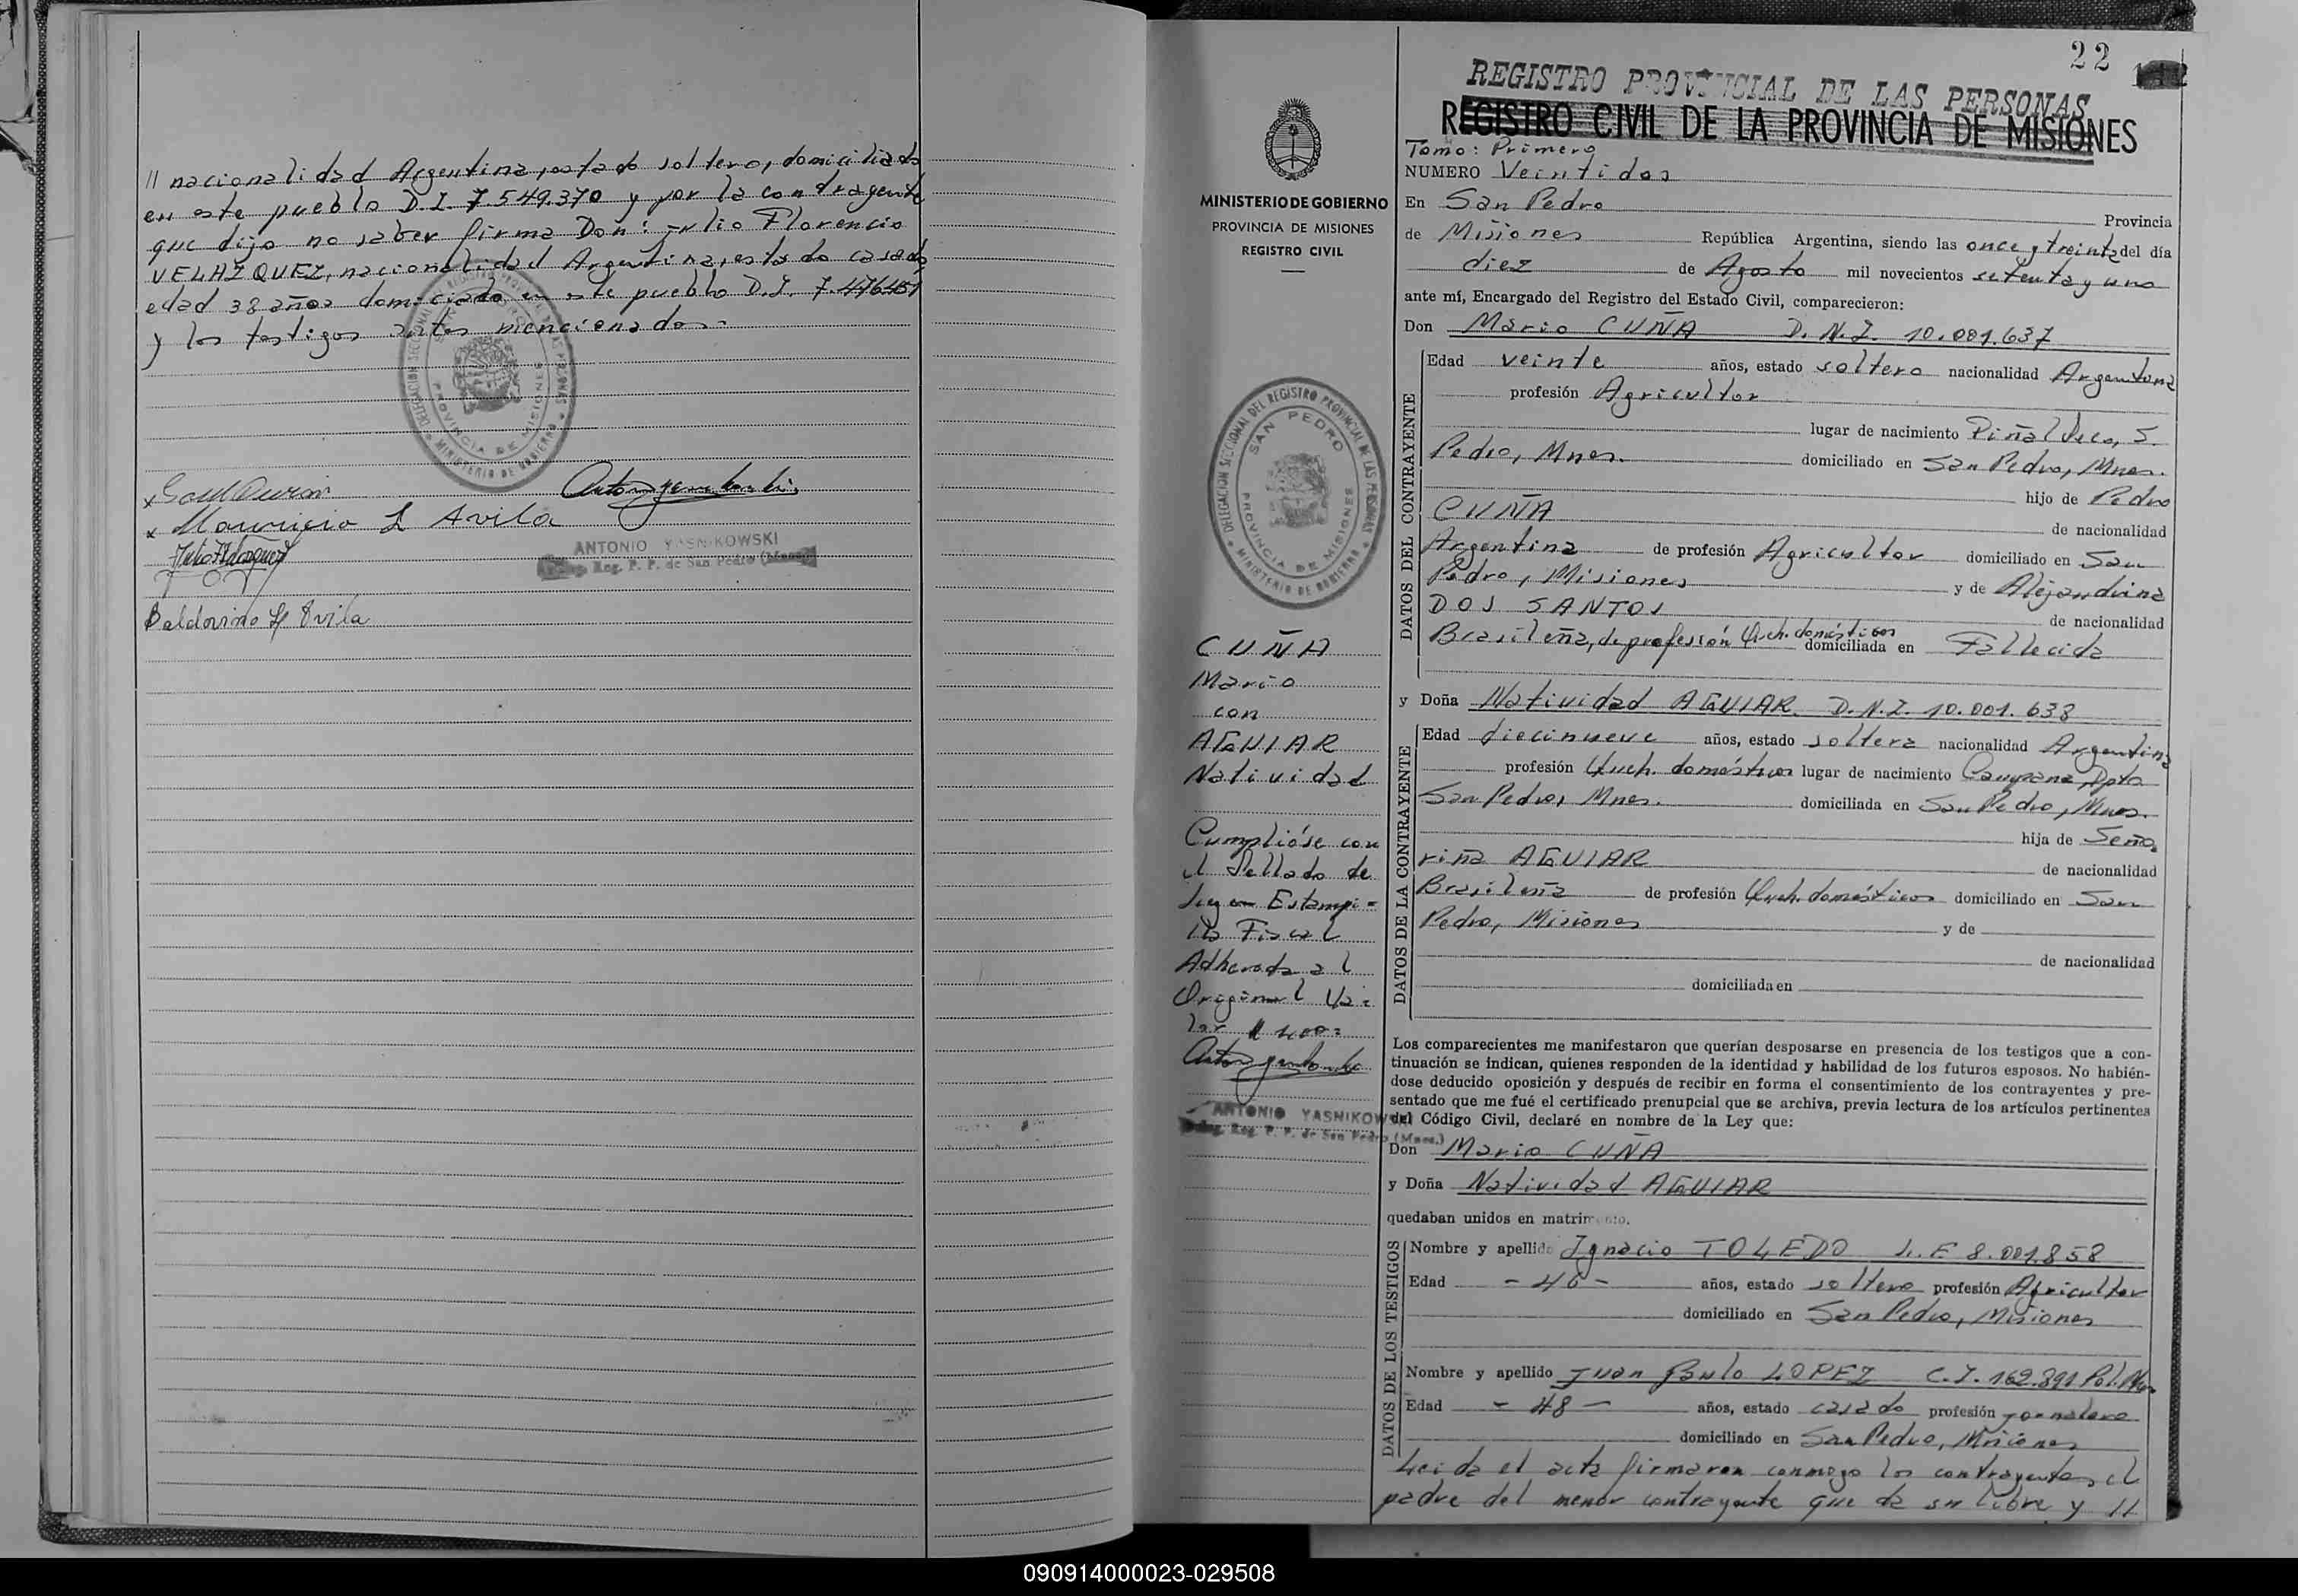 // nacionalidad Argentina, estado soltero, domiciliado
en este pueblo D.I. 7.549.370 y por la contrayente
que dijo no saber firma Don: Julio Florencio
VELAZQUEZ, nacionalidad Argentina, estado casado,
edad 38 años domiciado en este pueblo D.I. 7.476.451
y los testigos antes mencionados.-
Mauricio L Avila
Julio Velazquez
ANTONIO YASNIKOWSKI
Reg. P. P. de San Pedro (Mnes.)
Baldovino Avila
DELEGACION SECCIONAL DEL REGISTRO PROVINCIAL DE LAS PERSONAS
SAN PEDRO
PROVINCIA DE MISIONES
MINISTERIO DE GOBIERNO
22
REGISTRO PROVINCIAL DE LAS PERSONAS
REGISTRO CIVIL DE LA PROVINCIA DE MISIONES
MINISTERIO DE GOBIERNO
PROVINCIA DE MISIONES
REGISTRO CIVIL
Tomo: Primero
NUMERO Veintidos
En San Pedro Provincia
de Misiones República Argentina, siendo las once y treinta del día
diez de Agosto mil novecientos setenta y uno
ante mí, Encargado del Registro del Estado Civil, comparecieron:
Don Mario CUÑA D.N.I. 10.001.637
DATOS DEL CONTRAYENTE
Edad veinte años, estado soltero nacionalidad Argentina
profesión Agricultor
lugar de nacimiento Piñal Seco, S.
Pedro, Mnes. domiciliado en San Pedro, Mnes.
hijo de Pedro
CUÑA de nacionalidad
Argentina de profesión Agricultor domiciliado en San
Pedro, Misiones y de Alejandrina
DOS SANTOS de nacionalidad
Brasileña, de profesión Queh. domésticos domiciliada en Fallecida
y Doña Natividad AGUIAR D.N.I. 10.001.638
DATOS DE LA CONTRAYENTE
Edad diecinueve años, estado soltera nacionalidad Argentina
profesión Queh. domésticos lugar de nacimiento Campana, Dpto
San Pedro, Mnes. domiciliada en San Pedro, Mnes.
hija de Seño
riña AGUIAR de nacionalidad
Brasileña de profesión Queh. domésticos domiciliado en San
Pedro, Misiones y de
de nacionalidad
domiciliada en
Los comparecientes me manifestaron que querían desposarse en presencia de los testigos que a con-
tinuación se indican, quienes responden de la identidad y habilidad de los futuros esposos. No habién-
dose deducido oposición y después de recibir en forma el consentimiento de los contrayentes y pre-
sentado que me fué el certificado prenupcial que se archiva, previa lectura de los artículos pertinentes
del Código Civil, declaré en nombre de la Ley que:
Don Mario CUÑA
y Doña Natividad AGUIAR
quedaban unidos en matrimonio.
DATOS DE LOS TESTIGOS
Nombre y apellido Ignacio TOLEDO L.E 8.001.858
Edad - 46 - años, estado soltero profesión Agricultor
domiciliado en San Pedro, Misiones
Nombre y apellido Juan Paulo LOPEZ C.I. 162.891 Pol. Mnes
Edad - 48 - años, estado casado profesión jornalero
domiciliado en San Pedro, Misiones
Leida el acta firmaron conmigo los contrayentes, el
padre del menor contrayente que da su libre y //
DELEGACION SECCIONAL DEL REGISTRO PROVINCIAL DE LAS PERSONAS
SAN PEDRO
PROVINCIA DE MISIONES
MINISTERIO DE GOBIERNO
CUÑA
Mario
con
AGUIAR
Natividad
Cumplióse con
el Sellado de
Ley en Estampi=
lla Fiscal
Adherada al
Original Va=
lor
ANTONIO YASNIKOWSKI
Reg. P. P. de San Pedro (Mnes.)
090914000023-029508